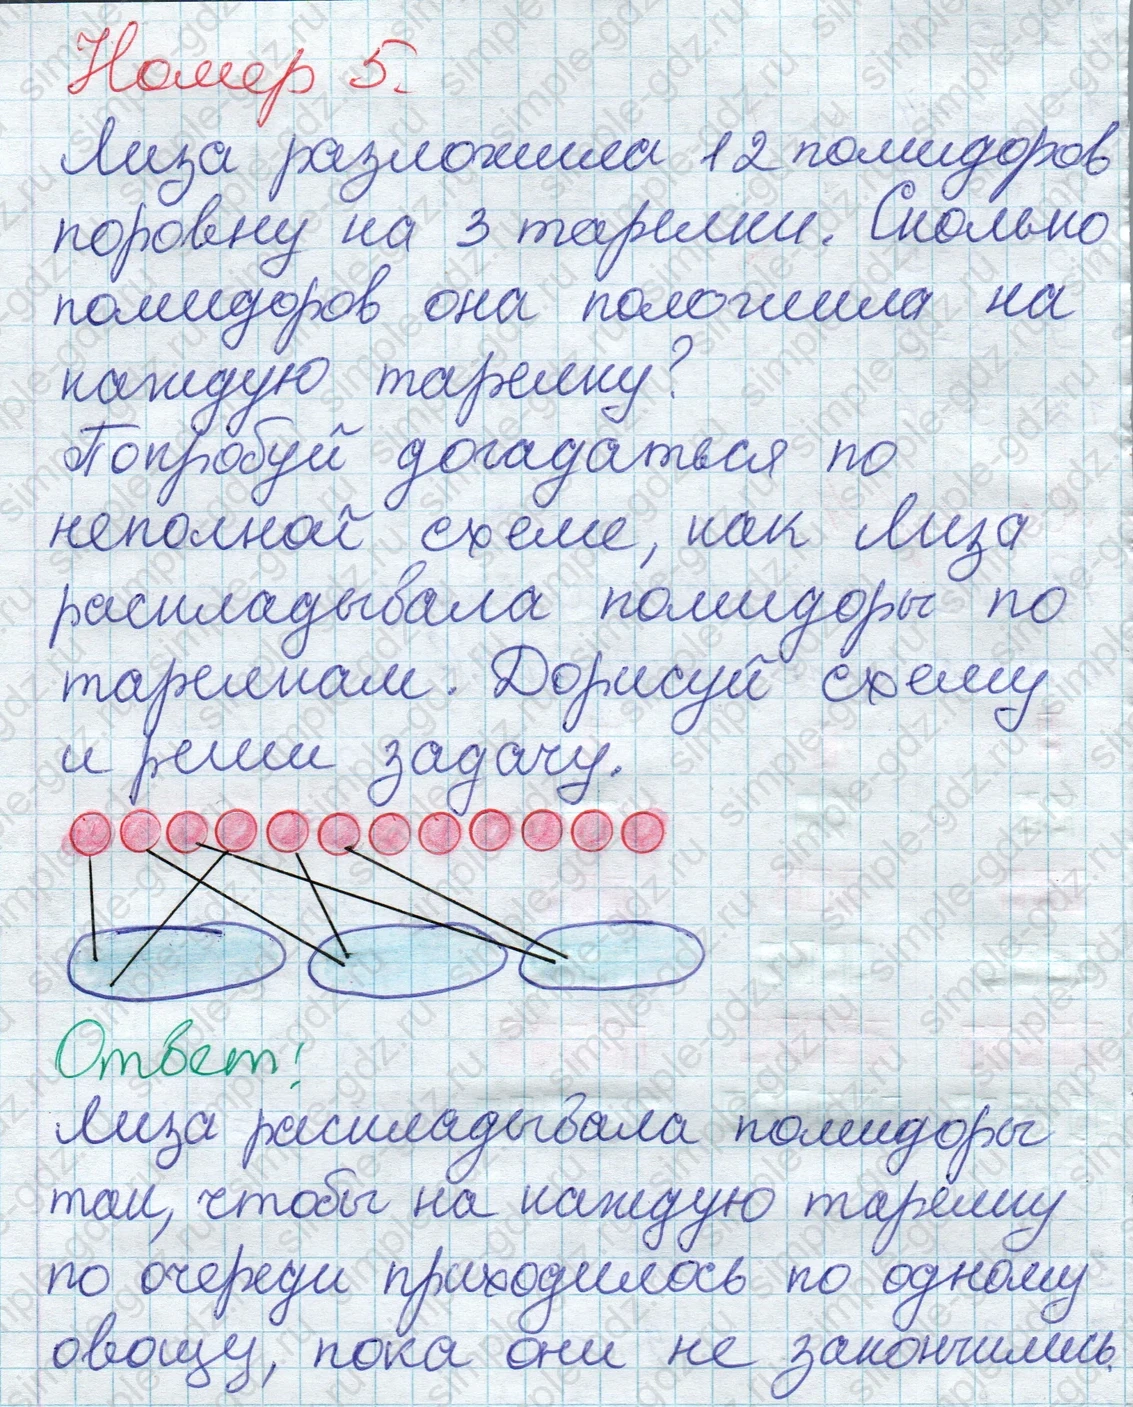 Номер 5.
Лиза разложила 12 помидоров
поровну на 3 тарелки. Сколько
помидоров она положила на
каждую тарелку?
Попробуй догадаться по
неполной схеме, как Лиза
раскладывала помидоры по
тарелкам. Дорисуй схему
и реши задачу.
Ответ:
Лиза раскладывала помидоры
так, чтобы на каждую тарелку
по очереди приходилось по одному
овощу, пока они не закончились.
simple-gdz.ru